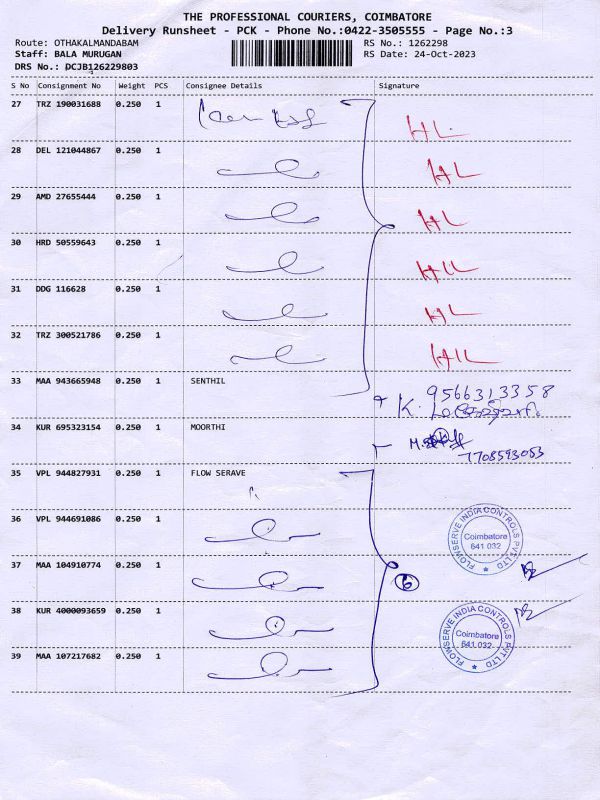 THE PROFESSIONAL COURIERS, COIMBATORE
Delivery Runsheet - PCK - Phone No.:0422-3505555 - Page No.:3
Route: OTHAKALMANDABAM RS No.: 1262298
Staff: BALA MURUGAN RS Date: 24-Oct-2023
DRS No.: DCJB126229803
S No Consignment No Weight PCS Consignee Details Signature
27 TRZ 190031688 0.250 1
HL
28 DEL 121044867 0.250 1
HL
29 AMD 27655444 0.250 1
HL
30 HRD 50559643 0.250 1
HLL
31 DDG 116628 0.250 1
HL
32 TRZ 300521786 0.250 1
HLL
33 MAA 943665948 0.250 1 SENTHIL
9566313358
K.
34 KUR 695323154 0.250 1 MOORTHI
M.
7708593053
35 VPL 944827931 0.250 1 FLOW SERAVE
36 VPL 944691086 0.250 1
FLOWSERVE INDIA CONTROLS PVT LTD
Coimbatore
641 032
37 MAA 104910774 0.250 1
6
38 KUR 4000093659 0.250 1
FLOWSERVE INDIA CONTROLS PVT LTD
Coimbatore
641 032
39 MAA 107217682 0.250 1